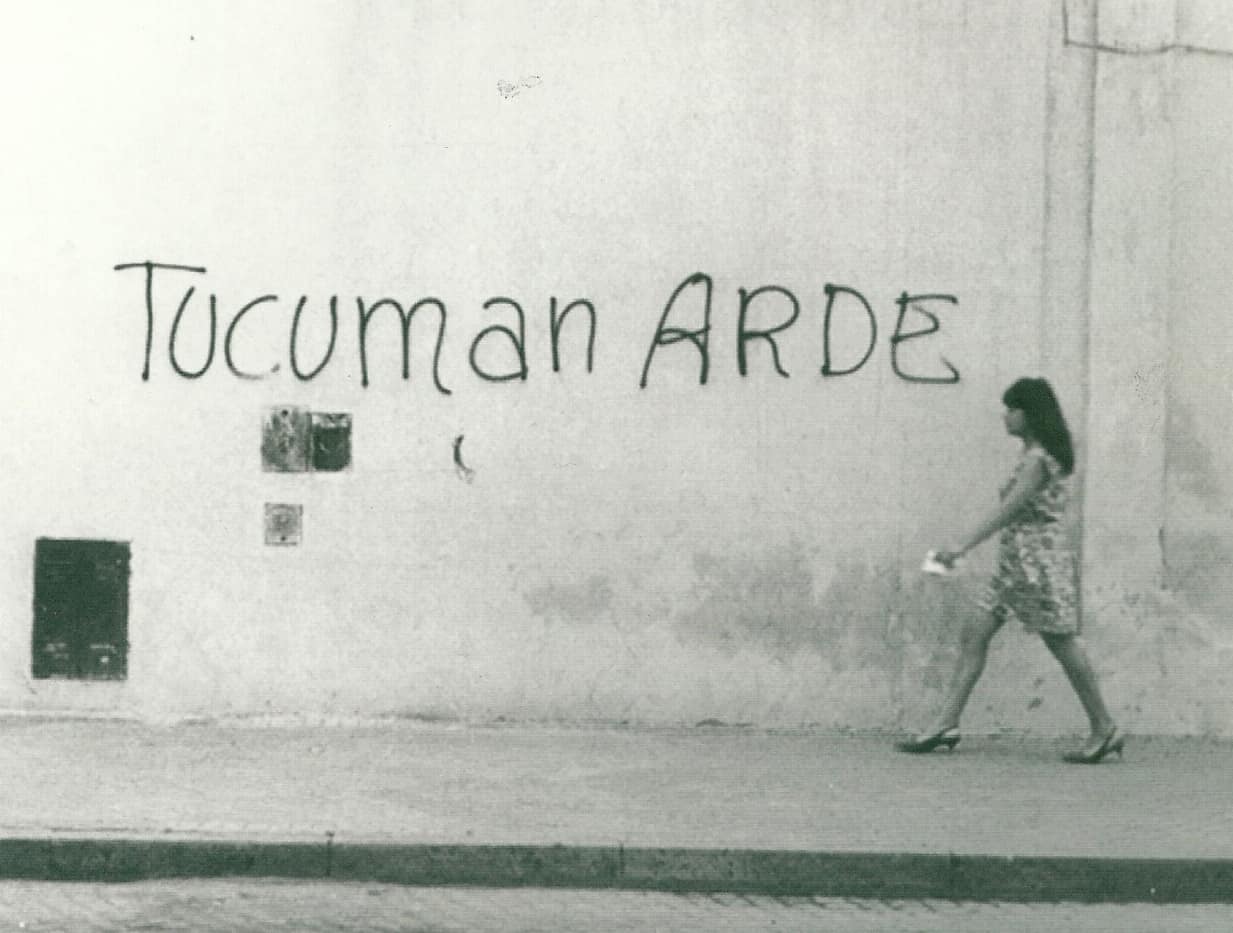 Tucuman ARDE